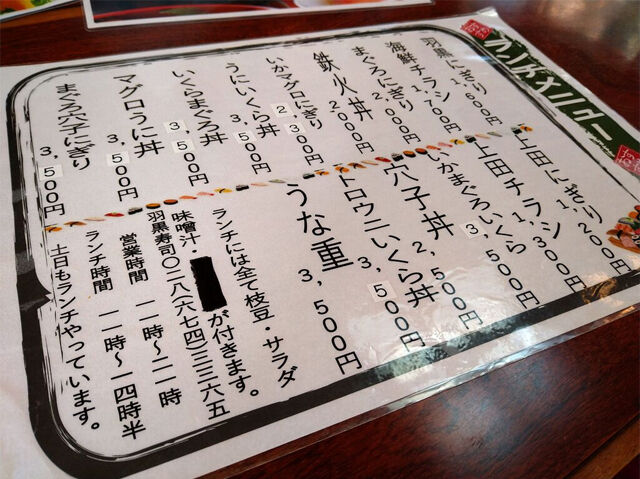 ランチメニュー
羽黒にぎり 1,600円
海鮮チラシ 1,700円
まぐろにぎり 2,000円
鉄火丼 2,000円
いかマグロにぎり 2,300円
うにいくら丼 3,500円
いくらまぐろ丼 3,500円
マグロうに丼 3,500円
まぐろ穴子にぎり 3,500円
上田にぎり 1,200円
上田チラシ 1,300円
いかまぐろいくら 3,500円
穴子丼 2,500円
トロウニいくら丼 3,500円
うな重 3,500円
ランチには全て枝豆・サラダ
味噌汁・が付きます。
羽黒寿司〇二八(六七四)三三六五
営業時間 一一時～二一時
ランチ時間 一一時～一四時半
土日もランチやっています。